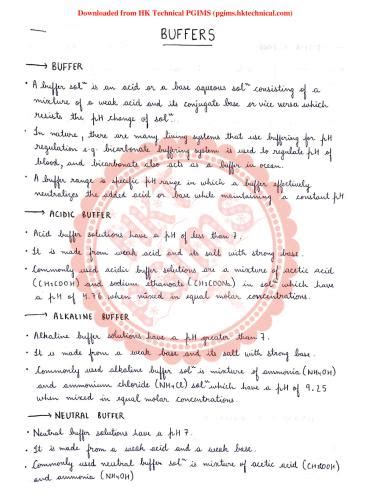 Downloaded from HK Technical PGIMS (pgims.hktechnical.com)
BUFFERS
→ BUFFER
• A buffer solⁿ is an acid or a base aqueous solⁿ consisting of a
mixture of a weak acid and its conjugate base or vice versa which
resists the pH change of solⁿ.
• In nature, there are many living systems that use buffering for pH
regulation e.g. bicarbonate buffering system is used to regulate pH of
blood, and bicarbonate also acts as a buffer in ocean.
• A buffer range is specific pH range in which a buffer effectively
neutralizes the added acid or base while maintaining a constant pH
→ ACIDIC BUFFER
• Acid buffer solutions have a pH of less than 7.
• It is made from weak acid and its salt with strong base.
• Commonly used acidic buffer solutions are a mixture of acetic acid
(CH3COOH) and sodium ethanoate (CH3COONa) in solⁿ which have
a pH of 4.76 when mixed in equal molar concentrations.
→ ALKALINE BUFFER
• Alkaline buffer solutions have a pH greater than 7.
• It is made from a weak base and its salt with strong base.
• Commonly used alkaline buffer solⁿ is mixture of ammonia (NH4OH)
and ammonium chloride (NH4Cl) solⁿ which have a pH of 9.25
when mixed in equal molar concentrations.
→ NEUTRAL BUFFER
• Neutral buffer solutions have a pH 7.
• It is made from a weak acid and a weak base.
• Commonly used neutral buffer solⁿ is mixture of acetic acid (CH3COOH)
and ammonia (NH4OH)